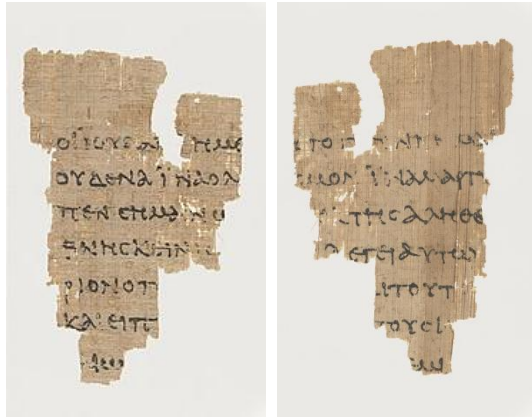 ΟΙ ΙΟΥΔΑΙ ΗΜΕ
ΟΥΔΕΝΑ ΪΝΑ Ο ΛΟ
ΠΕΝ ϹΗΜΑΙΝΩ
ΘΝΗϹΚΕΙΝ
ΡΙΟΝ Ο Π
ΚΑΙ ΕΙΠ
ΤΟ
ϹΜΟΝ ΪΝΑ ΜΑΡΤΥ
ΤΗϹ ΑΛΗΘΕ
ΛΕΓΕΙ ΑΥΤΩ
ΙΤΟΥΤ
ΤΟΥϹ Ι